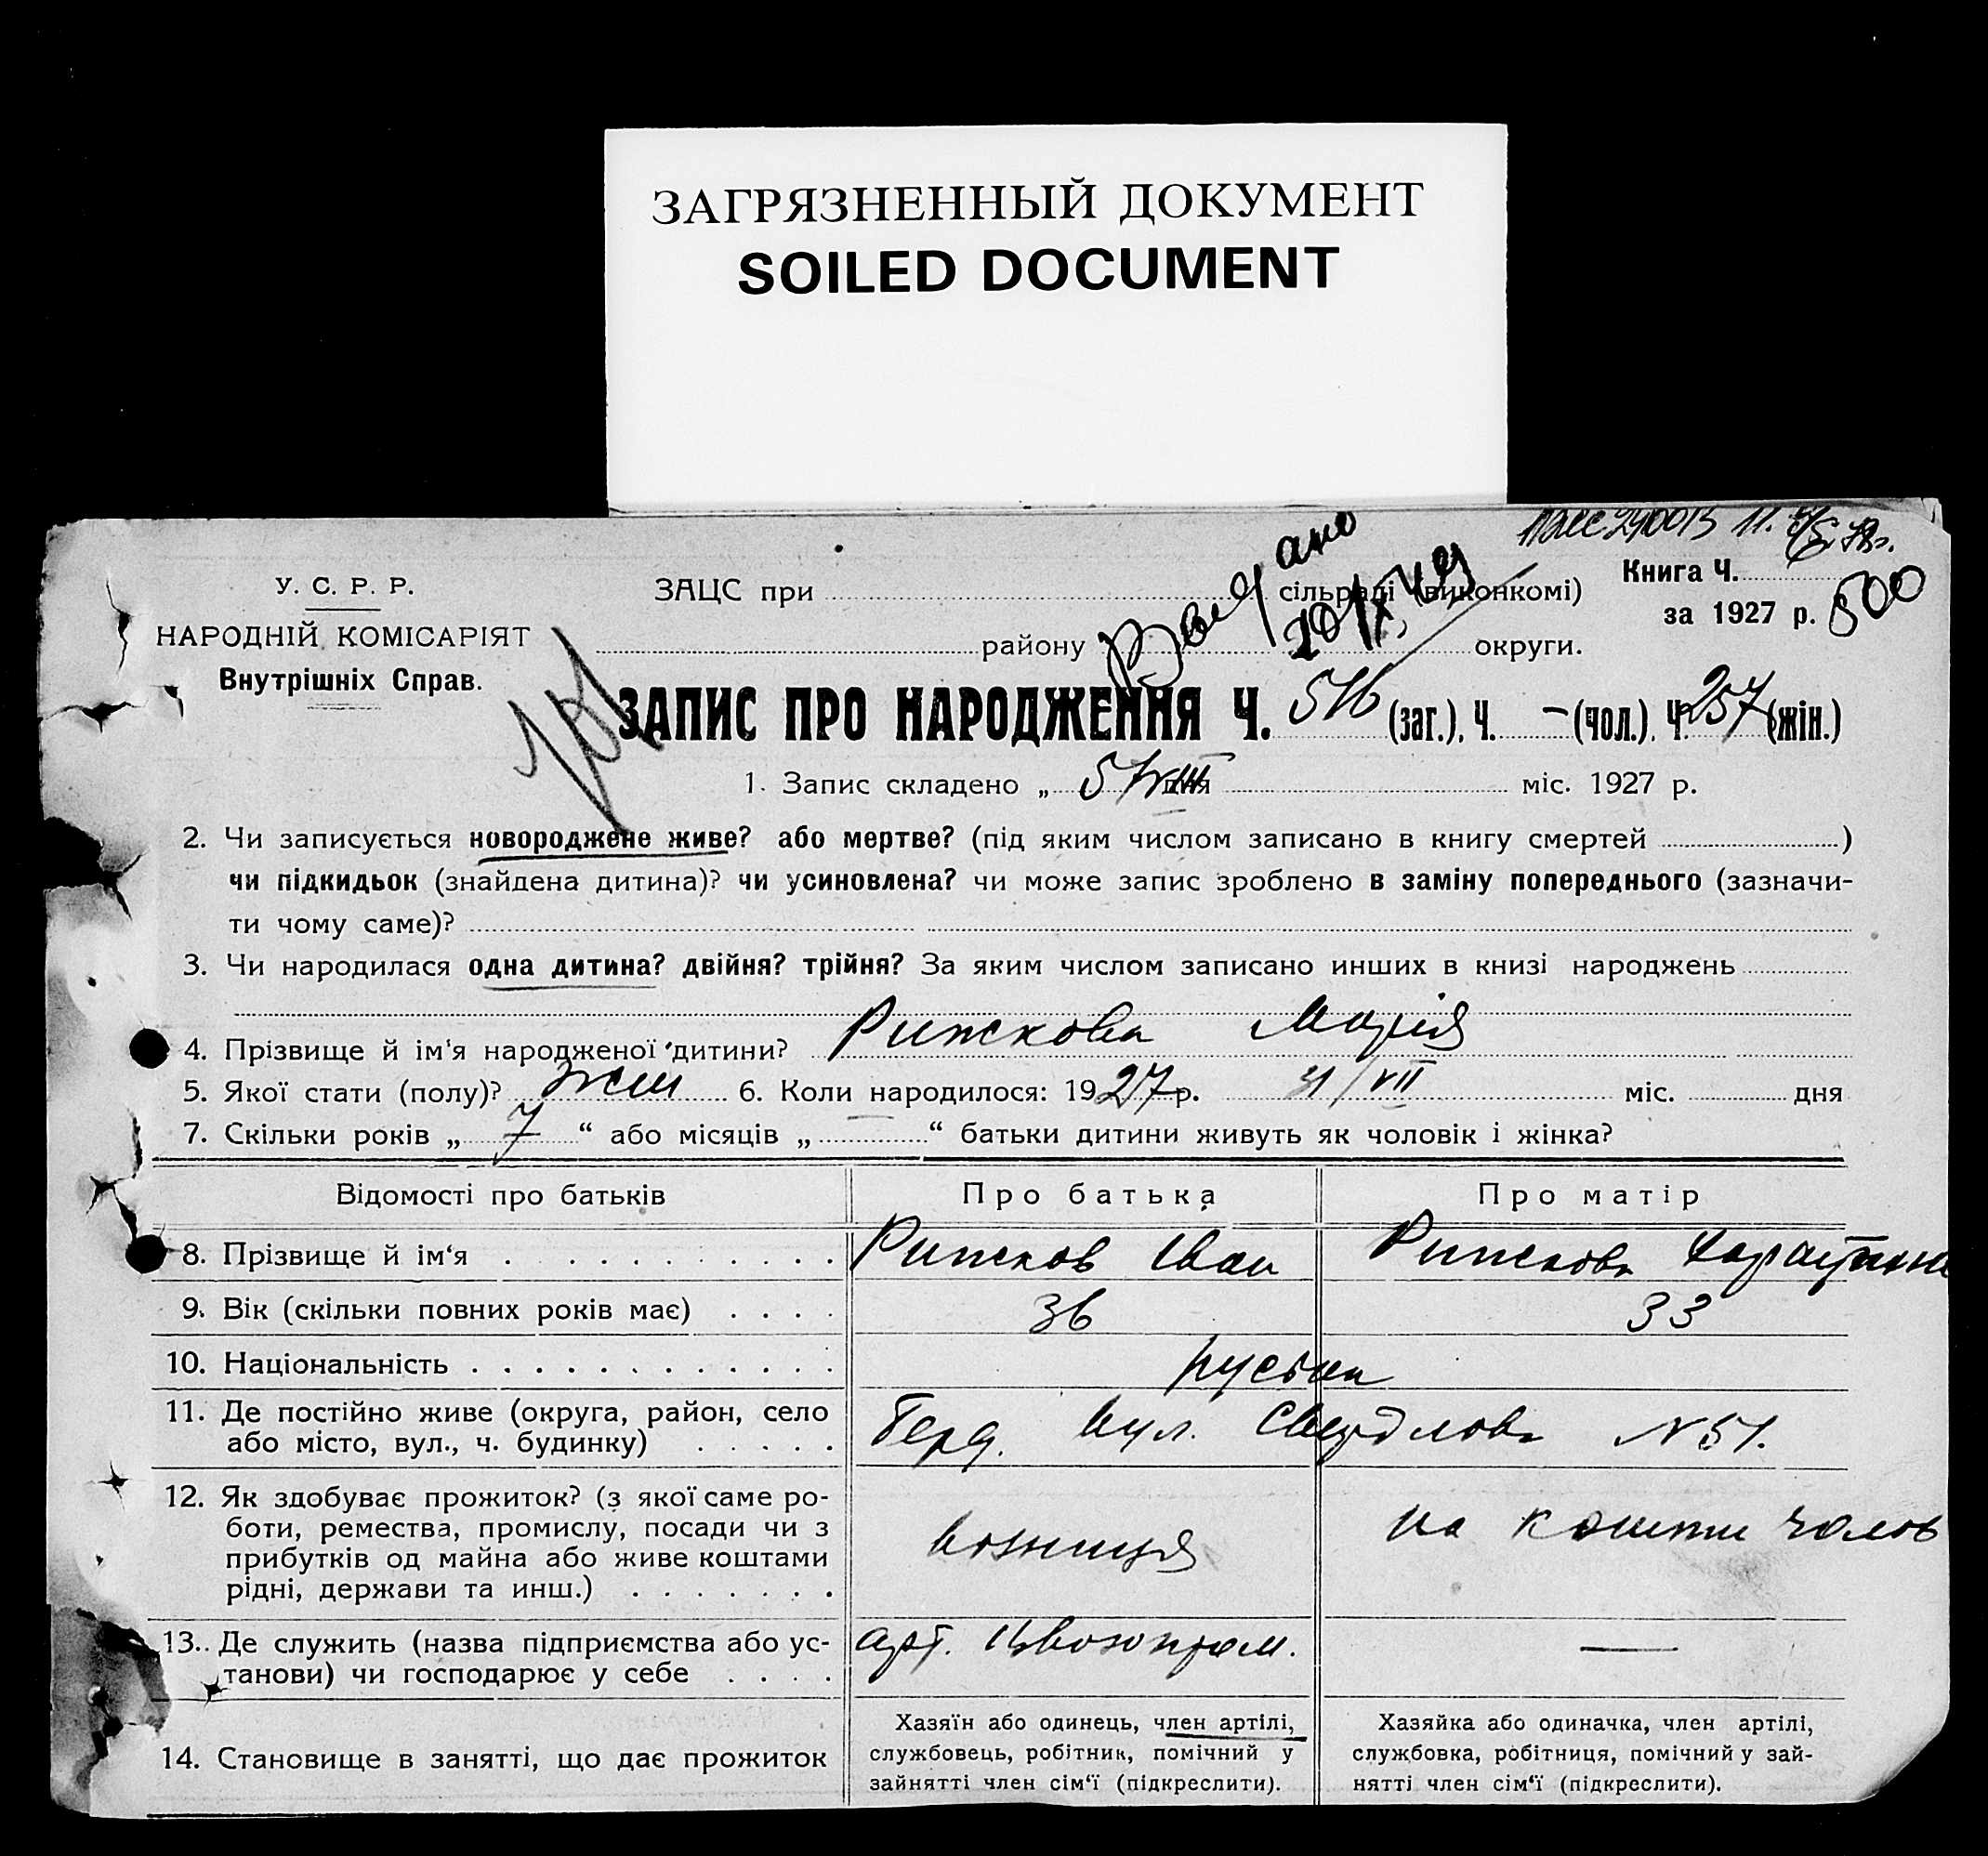 ЗАГРЯЗНЕННЫЙ ДОКУМЕНТ
SOILED DOCUMENT
У. С. Р. Р.
НАРОДНІЙ КОМІСАРІЯТ
Внутрішніх Справ.
ЗАЦС при сільраді (виконкомі)
району округи.
Книга Ч.
за 1927 р. 500
ЗАПИС ПРО НАРОДЖЕННЯ Ч. 516 (заг.), Ч. — (чол.), Ч. 257 (жін.)
1. Запис складено „ 5/VIII дня міс. 1927 р.
2. Чи записується новороджене живе? або мертве? (під яким числом записано в книгу смертей )
чи підкидьок (знайдена дитина)? чи усиновлена? чи може запис зроблено в заміну попереднього (зазначи-
ти чому саме)?
3. Чи народилася одна дитина? двійня? трійня? За яким числом записано инших в книзі народжень
4. Прізвище й ім'я народженої дитини? Рижкова Марія
5. Якої стати (полу)? жін 6. Коли народилося: 1927 р. 31/VII міс. дня
7. Скільки років „ 7 “ або місяців „ “ батьки дитини живуть як чоловік і жінка?
Відомості про батьків Про батька Про матір
8. Прізвище й ім'я Рижков Іван Рижкова
9. Вік (скільки повних років має) 36 33
10. Національність
11. Де постійно живе (округа, район, село
або місто, вул., ч. будинку) Берд. вул. Свердлова N 51.
12. Як здобуває прожиток? (з якої саме ро-
боти, ремества, промислу, посади чи з
прибутків од майна або живе коштами
рідні, держави та инш.) візниця на кошти чолов
13. Де служить (назва підприємства або ус-
танови) чи господарює у себе арт. —
14. Становище в занятті, що дає прожиток
Хазяїн або одинець, член артілі,
службовець, робітник, помічний у
зайнятті член сім'ї (підкреслити).
Хазяйка або одиначка, член артілі,
службовка, робітниця, помічний у зай-
нятті член сім'ї (підкреслити).